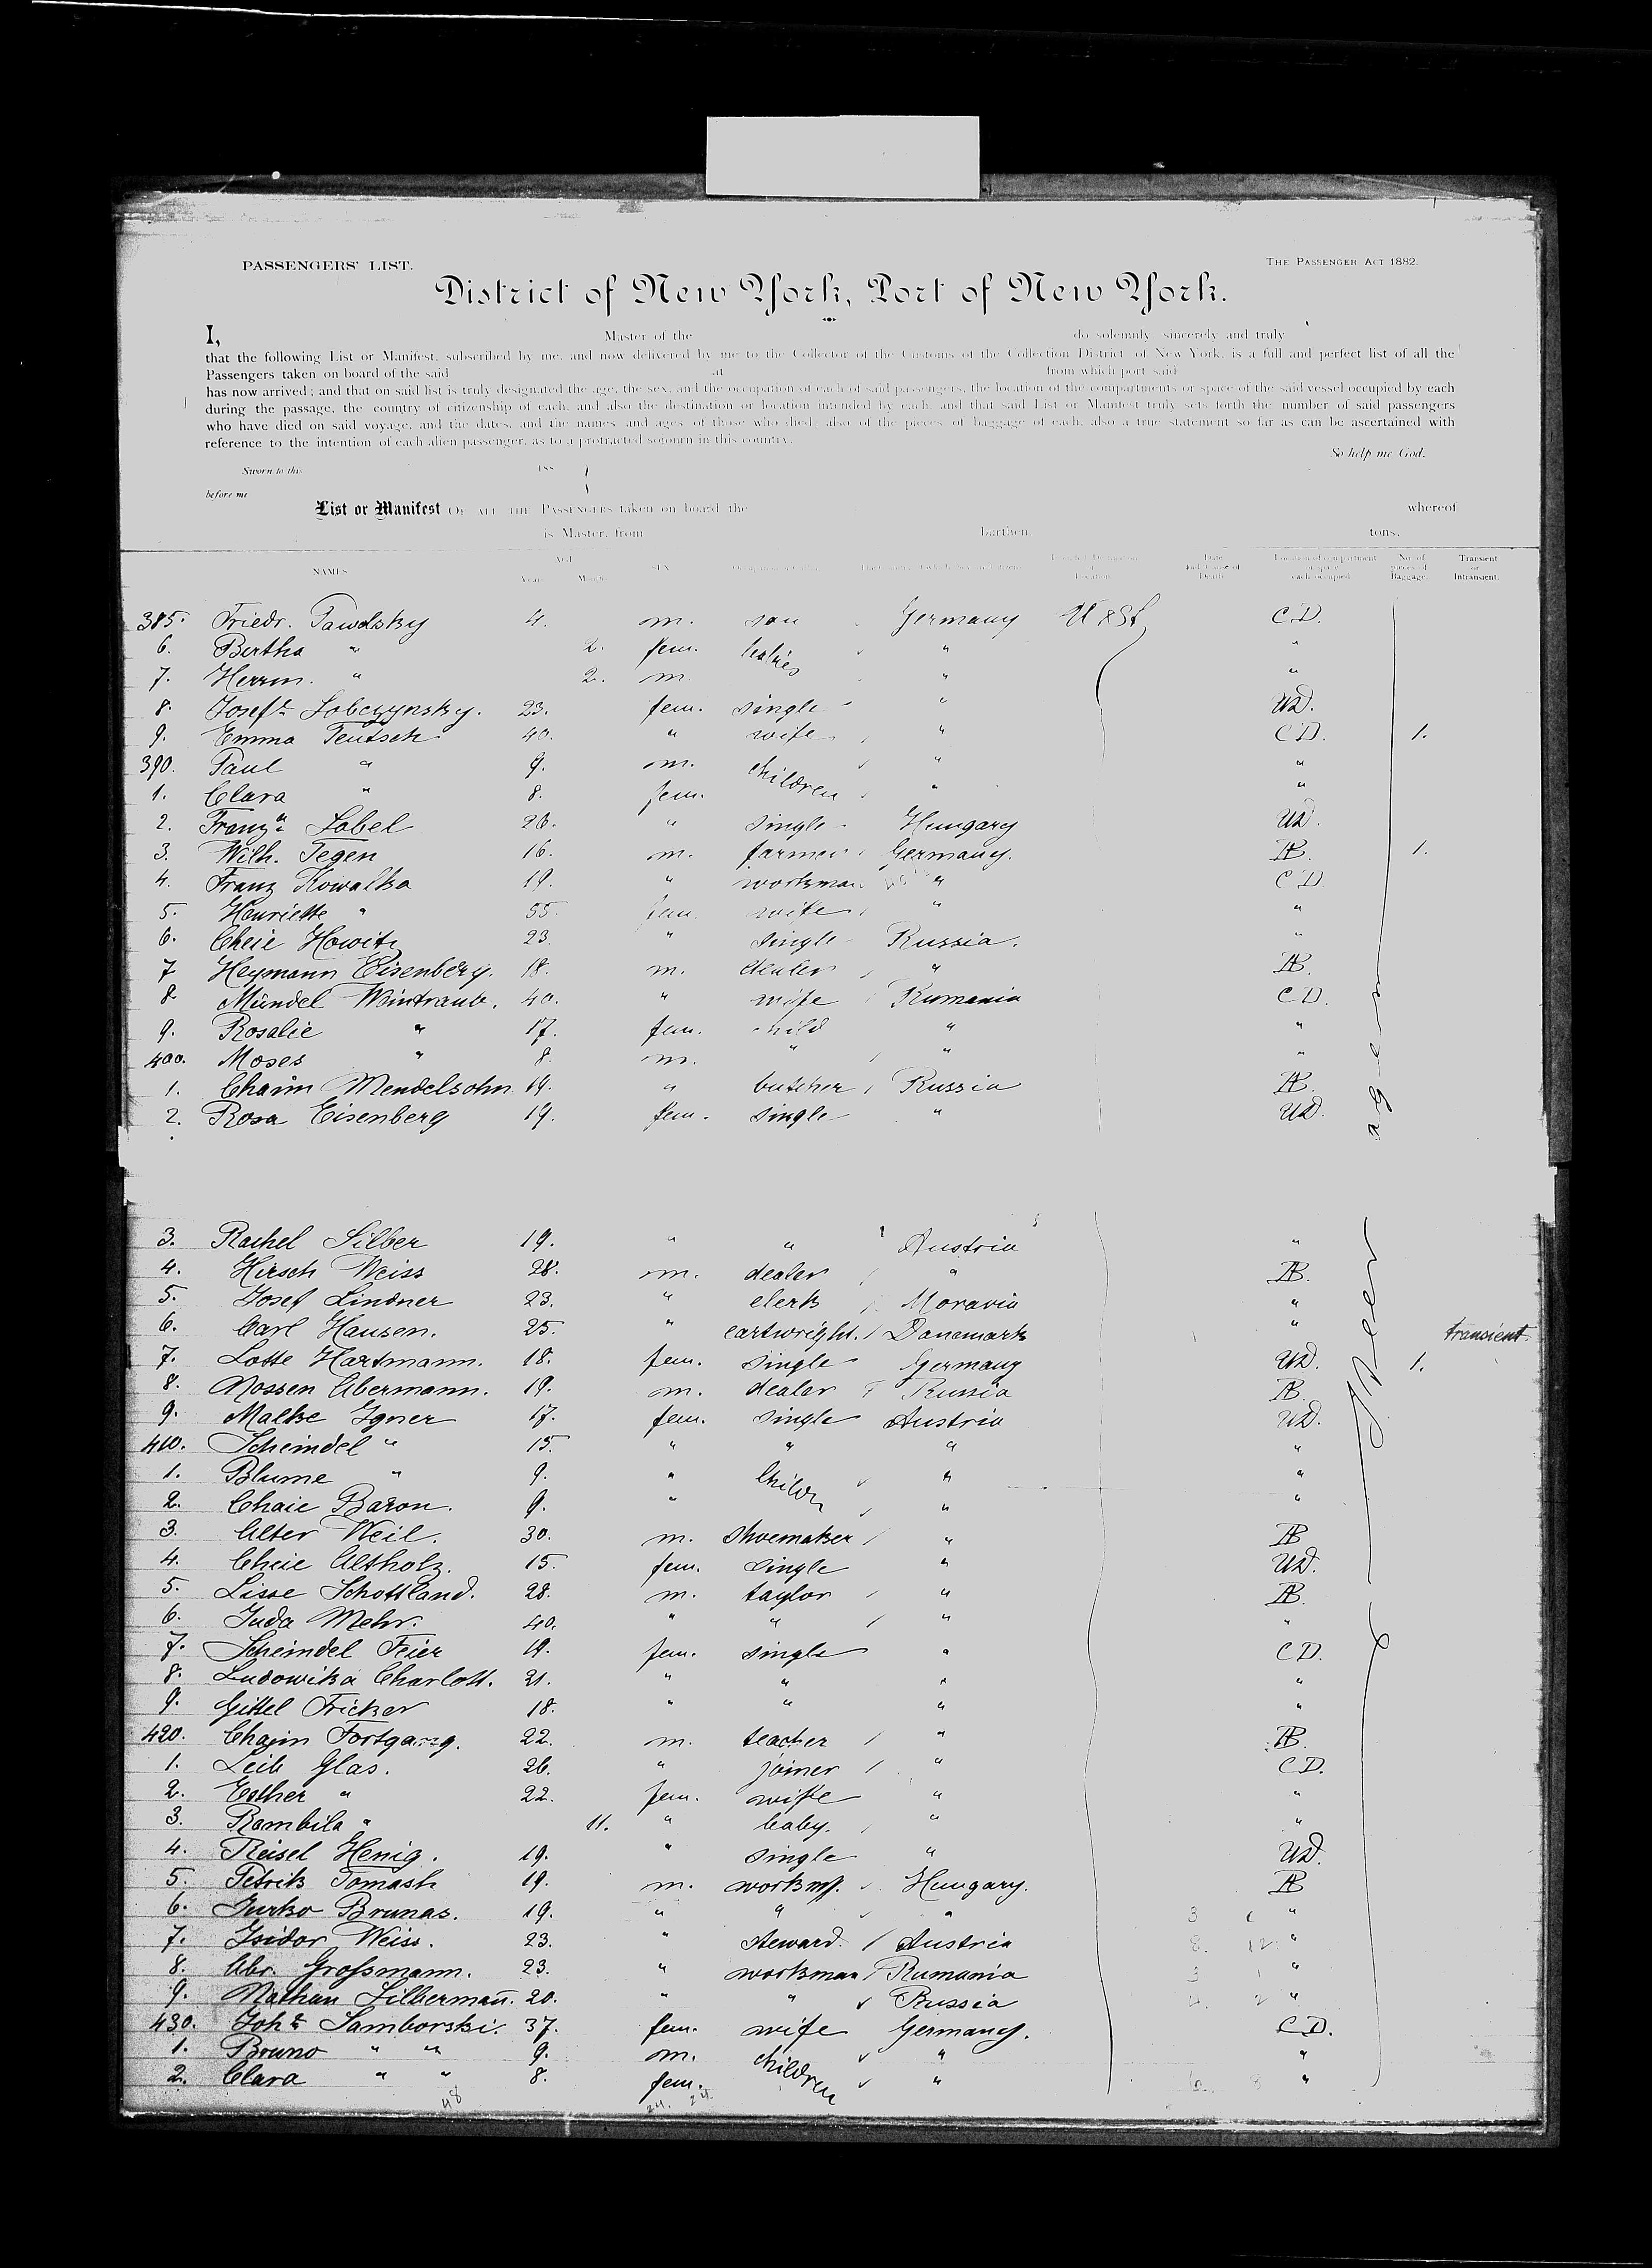 PASSENGERS' LIST. THE PASSENGER ACT 1882.
District of New York, Port of New York.
I, Master of the do solemnly sincerely and truly
that the following List or Manifest, subscribed by me, and now delivered by me to the Collector of the Customs of the Collection District of New York, is a full and perfect list of all the
Passengers taken on board of the said at from which port said
has now arrived; and that on said list is truly designated the age, the sex, and the occupation of each of said passengers, the location of the compartments or space of the said vessel occupied by each
during the passage, the country of citizenship of each, and also the destination or location intended by each, and that said List or Manifest truly sets forth the number of said passengers
who have died on said voyage, and the dates, and the names and ages of those who died, also of the pieces of baggage of each, also a true statement so far as can be ascertained with
reference to the intention of each alien passenger, as to a protracted sojourn in this country.
So help me God.
Sworn to this 188
before me
List or Manifest OF ALL THE PASSENGERS taken on board the whereof
is Master, from burthen tons.
NAMES AGE Years Months SEX Location of compartment or space each occupied No. of pieces of Baggage. Transient or Intransient.
385. Friedr. Pawolsky 4. m. son Germany U St C.D.
6. Bertha " 2. fem. babies " "
7. Herrm. " 2. m. " "
8. Josefa Lobczynsky. 23. fem. single " UD.
9. Emma Teutsch 40. " wife " C.D. 1.
390. Paul " 9. m. children " "
1. Clara " 8. fem. " "
2. Franza Label 26. " single Hungary UD.
3. Wilh. Tegen 16. m. farmer Germany. AB. 1.
4. Franz Kowalka 19. " workman " C.D.
5. Henriette " 55. fem. wife " "
6. Cheie Howitz 23. " single Russia. "
7 Heymann Eisenberg. 18. m. dealer " AB.
8. Mündel Weintraub. 40. " wife Rumania C.D.
9. Rosalie " 17. fem. child " "
400. Moses " 8. m. " " "
1. Chaim Mendelsohn 19. " butcher Russia AB.
2. Rosa Eisenberg 19. fem. single " UD.
3. Rachel Silber 19. " " Austria "
4. Hirsch Weiss 28. m. dealer " AB.
5. Josef Lindner 23. " clerk Moravia "
6. Carl Hansen. 25. " cartwright. Danemark " transient
7. Lotte Hartmann. 18. fem. single Germany UD. 1.
8. Nossen Abermann. 19. m. dealer Russia AB.
9. Malke Igner 17. fem. single Austria UD.
410. Scheindel " 15. " " " "
1. Blume " 9. " Childr " "
2. Chaie Baron. 9. " " "
3. Alter Weil. 30. m. shoemaker " AB
4. Cheie Altholz. 15. fem. single " UD.
5. Lisse Schottland. 28. m. taylor " AB.
6. Juda Mehr. 40. " " " "
7. Scheindel Feier 19. fem. single " C.D.
8. Ludowika Charlott. 21. " " " "
9. Gittel Fricker 18. " " " "
420. Chaim Fortgang. 22. m. teacher " AB.
1. Leib Glas. 26. " joiner " C.D.
2. Esther " 22. fem. wife " "
3. Rambila " 11. " baby. " "
4. Reisel Henig. 19. " single " UD.
5. Petrik Tomash 19. m. workm. Hungary. AB
6. Jurko Brunas. 19. " " " "
7. Isidor Weiss. 23. " steward. Austria "
8. Abr. Grossmann. 23. " workman Rumania "
9. Nathan Silbermañ. 20. " " Russia "
430. Joha Samborski. 37. fem. wife Germany. C.D.
1. Bruno " " 9. m. children " "
2. Clara " " 8. fem. " "
48 24. 24.